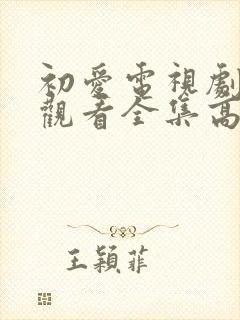 初愛電視劇
觀看全集高
王穎菲